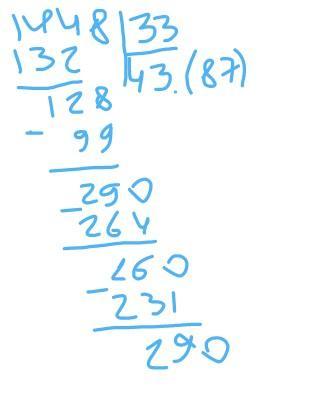 1448 33
132 43.(87)
128
- 99
290
- 264
260
- 231
290